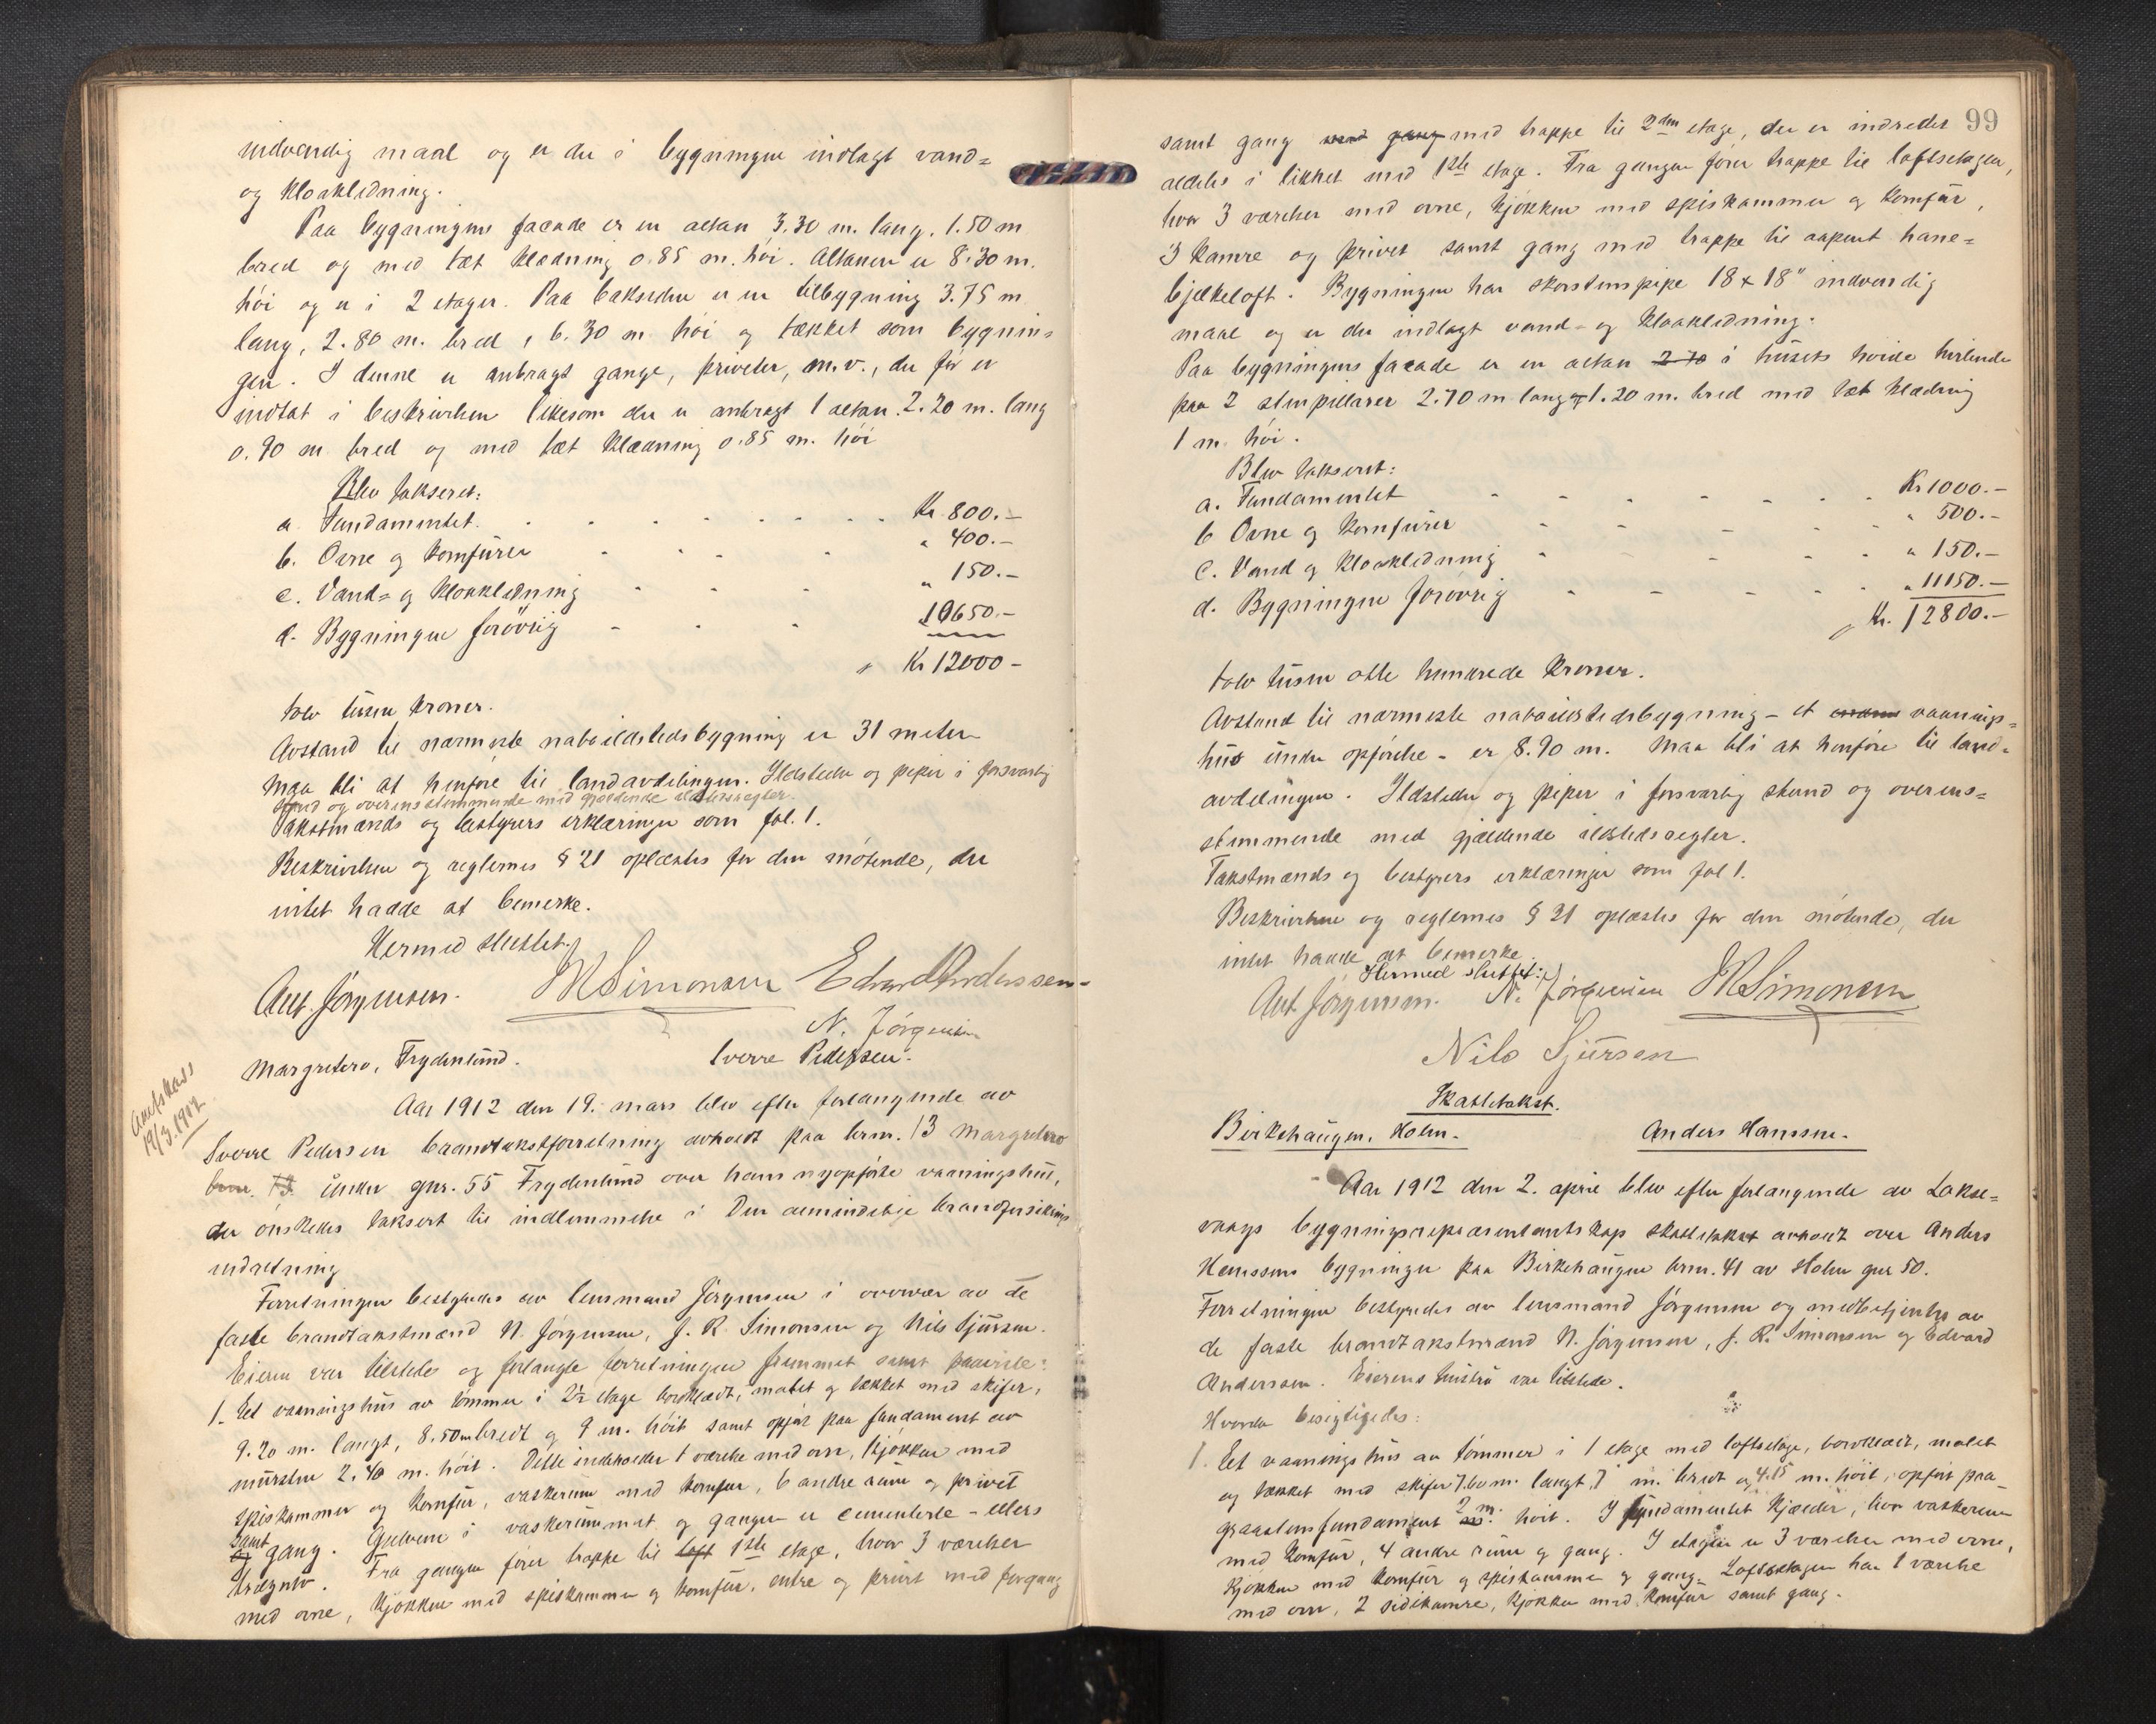 indvendig maal og er der i bygningen indlagt vand=
og kloakledning.
Paa bygningens facade er en altan 3.30 m. lang, 1.50 m
bred og med tæt klædning 0.85 m. høi. Altanen er 8.30 m.
høi og er i 2 etager. Paa baksiden er en tilbygning 3.75 m
lang, 2.80 m. bred, 6.30 m. høi og tækket som bygnin=
gen. I denne er anbragt gange, priveter, m.v., der før er
indtat i beskrivelsen likesom der er anbragt 1 altan 2.20 m. lang
0.90 m bred og med tæt klædning 0.85 m. høi
Blev takseret:
a. Fundamentet. Kr. 800.-
b. Ovne og komfürer " 400.-
c. Vand= og kloakledning " 150.-
d. Bygningen forøvrig 10650.-
Kr 12000-
tolv tusen kroner.
Avstand til nærmeste naboildstedsbygning er 31 meter
Maa bli at henføre til landavdelingen. Ildsteder og piper i forsvarlig
stand og overensstemmende med gjældende ildstedsregler.
Takstmænds og bestyrers erklæringer som fol. 1.
Beskrivelsen og reglernes § 21 oplæstes for den møtende, der
intet hadde at bemerke.
Hermed sluttet.
Ant. Jørgensen. J R Simonsen Edvard Anderssen-
N. Jørgensen
Margretero, Frydenlund. Sverre Pedersen.
19/3.1912
Aar 1912 den 19. mars blev efter forlangende av
Sverre Pedersen brandtakstforretning avholdt paa brnr. 13 Margretero
brnr. 13 under gnr. 55 Frydenlund over hans nyopførte vaaningshus,
der ønskedes taksert til indlemmelse i Den almindelige brandforsikrings
indretning
Forretningen bestyredes av lensmand Jørgensen i overvær av de
faste brandtakstmænd N. Jørgensen, J. R. Simonsen og Nils Sjursen.
Eieren var tilstede og forlangte forretningen fremmet samt paaviste:
1. Et vaaningshus av tømmer i 2½ etage bordklædt, malet og tækket med skifer,
9.20 m. langt, 8.50 m bredt og 9 m. høit samt opført paa fundament av
murstén 2.40 m. høit. Dette indeholder 1 værelse med ovn, kjøkken med
spiskammer og komfur, vaskerum med komfur, 6 andre rum og privet
samt
og gang. Gulvene i vaskerummet og gangen er cementerte - ellers
trægulv. Fra gangen fører trappe til loft 1ste etage, hvor 3 værelser
med ovne, kjøkken med spiskammer og komfur, entre og privet med forgang
99
samt gang med gang med trappe til 2den etage, der er indredet
aldeles i likhet med 1ste etage. Fra gangen fører trappe til loftsetagen,
hvor 3 værelser med ovne, kjøkken med spiskammer og komfur,
3 kamre og privet samt gang med trappe til aapent hane=
bjelkeloft. Bygningen har skorstenspipe 18 x 18" indvendig
maal og er der indlagt vand- og kloakledning.
Paa bygningens facade er en altan 2 70 i husets høide hvilende
paa 2 stenpillarer 2.70 m lang og 1.20 m. bred med tæt klædning
1 m. høi.
Blev takseret:
a. Fundamentet Kr 1000.-
b Ovne og komfurer " 500.-
c. Vand og kloakledning " 150.-
d. Bygningen forøvrig " 11150.-
Kr. 12800.-
tolv tusen otte hundrede kroner.
Avstand til nærmeste naboildstedsbygning - et vaanings=
hus under opførelse - er 8.90 m. Maa bli at henføre til land=
avdelingen. Ildsteder og piper i forsvarlig stand og overens=
stemmende med gjældende ildstedsregler.
Takstmænds og bestyrers erklæringer som fol 1.
Beskrivelsen og reglernes § 21 oplæstes for den møtende, der
intet hadde at bemerke
Hermed sluttet:
Ant Jørgensen. N. Jørgensen J R Simonsen
Nils Sjursen
Skattetakst.
Birkehaugen, Holm. Anders Hanssen.
Aar 1912 den 2. april blev efter forlangende av Lakse=
vaags bygningsrepræsentantskap skattetakst avholdt over Anders
Hanssens bygninger paa Birkehaugen brnr. 41 av Holm gnr 50.
Forretningen bestyredes av lensmand Jørgensen og medbetjentes av
de faste brandtakstmænd N. Jørgensen, J. R. Simonsen og Edvard
Anderssen. Eierens hustru var tilstede.
Hvorda besigtigedes:
1. Et vaaningshus av tømmer i 1 etage med loftsetage, bordklædt, malet
og tækket med skifer 7.60 m. langt, 7 m. bredt og 4.15 m. høit, opført paa
graastensfundament 2 m. høit. I fundamentet kjælder, hvor vaskerum
med komfur, 4 andre rum og gang. I etagen er 3 værelser med ovne,
kjøkken med komfur og spiskammer og gang. Loftsetagen har 1 værelse
med ovn, 2 sidekamre, kjøkken med komfur samt gang.